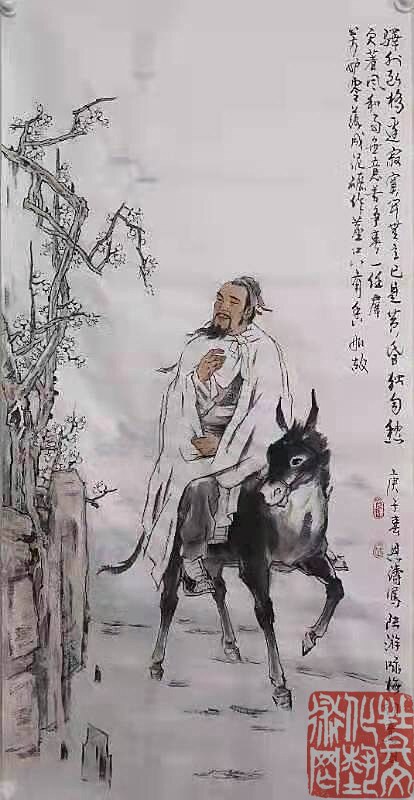 驛外断桥边寂寞开無主已是黄昏独自愁
更著风和雨無意苦争春一任群
芳妒零落成泥碾作塵只有香如故
庚子春 濤寫陆游咏梅